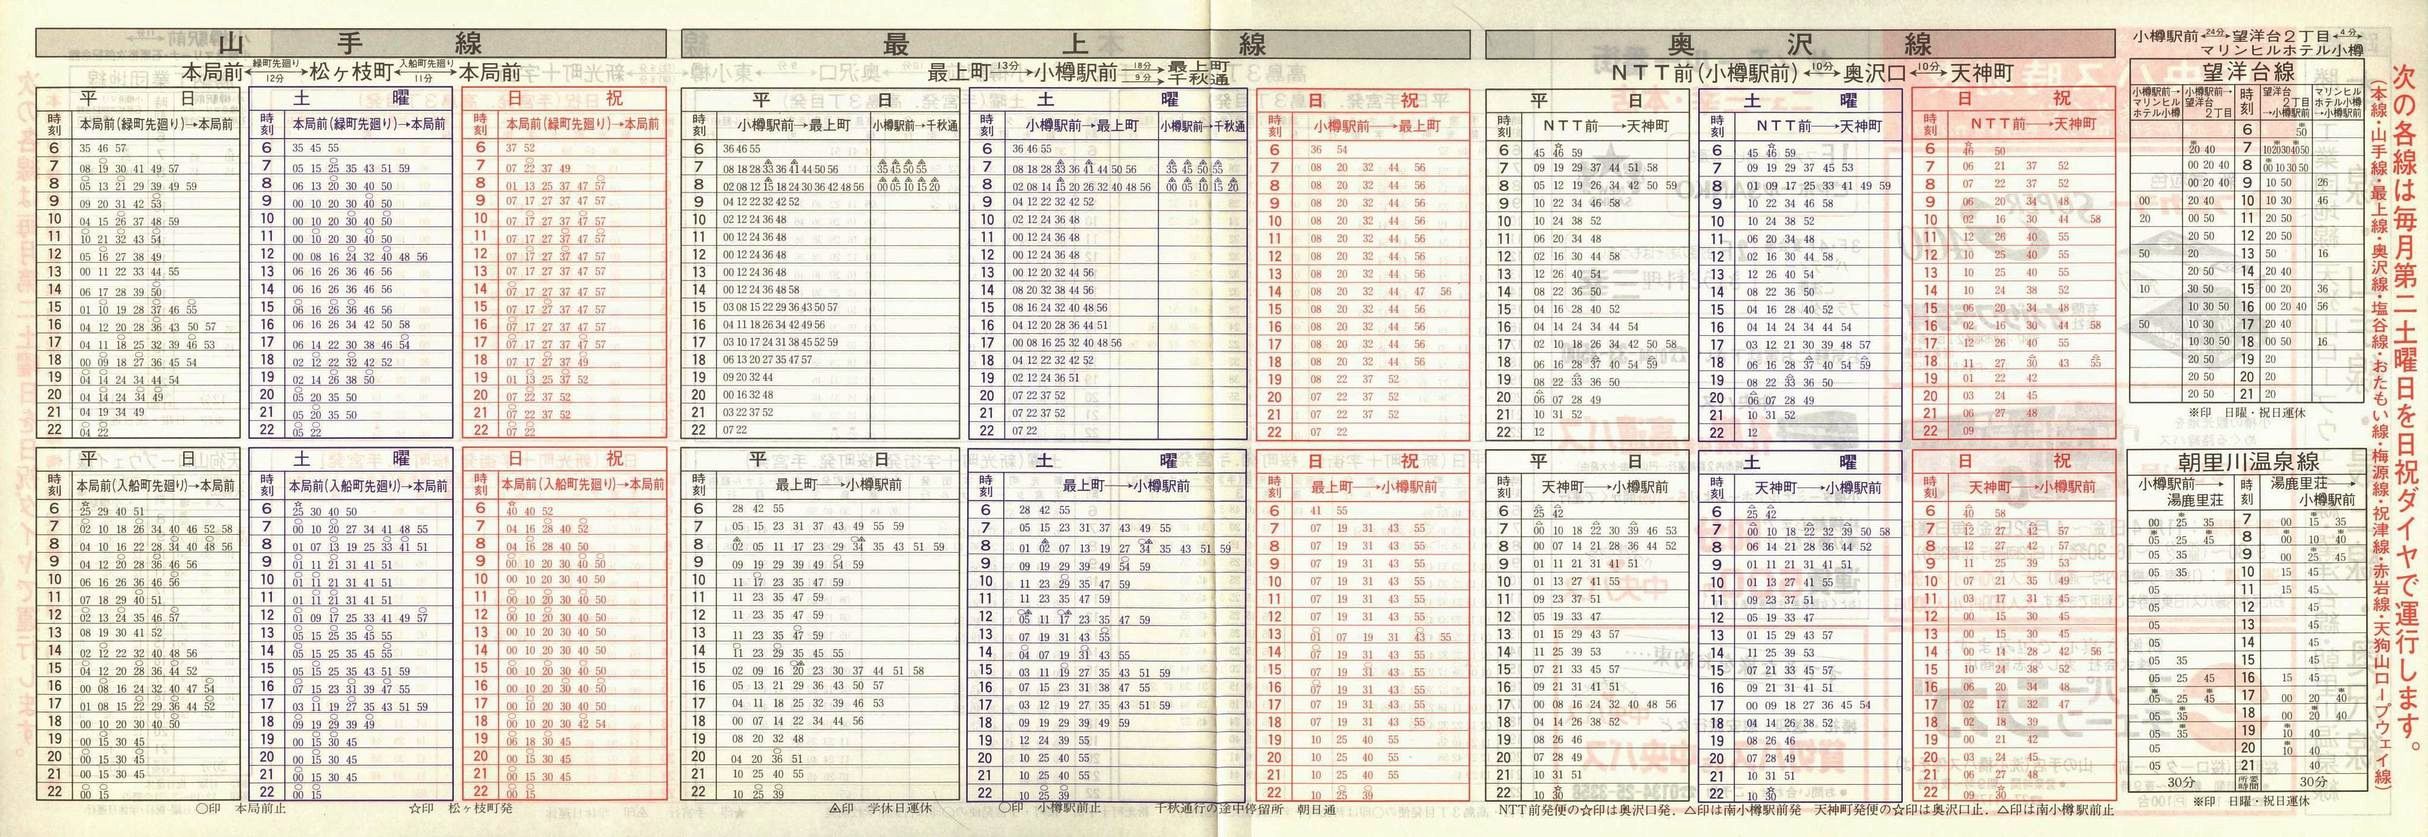 山手線
本局前 緑町先廻り 12分 松ヶ枝町 入船町先廻り 11分 本局前
平日
時刻 本局前(緑町先廻り)→本局前
6 35 46 57
7 08 19 30 41 49 57
8 05 13 21 29 39 49 59
9 09 20 31 42 53
10 04 15 26 37 48 59
11 10 21 32 43 54
12 05 16 27 38 49
13 00 11 22 33 44 55
14 06 17 28 39 50
15 01 10 19 28 37 46 55
16 04 12 20 28 36 43 50 57
17 04 11 18 25 32 39 46 53
18 00 09 18 27 36 45 54
19 04 14 24 34 44 54
20 04 14 24 34 49
21 04 19 34 49
22 04 22
土曜
時刻 本局前(緑町先廻り)→本局前
6 35 45 55
7 05 15 25 35 43 51 59
8 06 13 20 30 40 50
9 00 10 20 30 40 50
10 00 10 20 30 40 50
11 00 10 20 30 40 50
12 00 08 16 24 32 40 48 56
13 06 16 26 36 46 56
14 06 16 26 36 46 56
15 06 16 26 36 46 56
16 06 16 26 34 42 50 58
17 06 14 22 30 38 46 54
18 02 12 22 32 42 52
19 02 14 26 38 50
20 05 20 35 50
21 05 20 35 50
22 05 22
日祝
時刻 本局前(緑町先廻り)→本局前
6 37 52
7 07 22 37 49
8 01 13 25 37 47 57
9 07 17 27 37 47 57
10 07 17 27 37 47 57
11 07 17 27 37 47 57
12 07 17 27 37 47 57
13 07 17 27 37 47 57
14 07 17 27 37 47 57
15 07 17 27 37 47 57
16 07 17 27 37 47 57
17 07 17 27 37 47 57
18 07 17 27 37 49
19 01 13 25 37 52
20 07 22 37 52
21 07 22 37 52
22 07 22
平日
時刻 本局前(入船町先廻り)→本局前
6 25 29 40 51
7 02 10 18 26 34 40 46 52 58
8 04 10 16 22 28 34 40 48 56
9 04 12 20 28 36 46 56
10 06 16 26 36 46 56
11 07 18 29 40 51
12 02 13 24 35 46 57
13 08 19 30 41 52
14 02 12 22 32 40 48 56
15 04 12 20 28 36 44 52
16 00 08 16 24 32 40 47 54
17 01 08 15 22 29 36 44 52
18 00 10 20 30 40 50
19 00 15 30 45
20 00 15 30 45
21 00 15 30 45
22 00 15
土曜
時刻 本局前(入船町先廻り)→本局前
6 25 30 40 50
7 00 10 20 27 34 41 48 55
8 01 07 13 19 25 33 41 51
9 01 11 21 31 41 51
10 01 11 21 31 41 51
11 01 11 21 31 41 51
12 01 09 17 25 33 41 49 57
13 05 15 25 35 45 55
14 05 15 25 35 45 55
15 05 15 25 35 43 51 59
16 07 15 23 31 39 47 55
17 03 11 19 27 35 43 51 59
18 09 19 29 39 49
19 00 15 30 45
20 00 15 30 45
21 00 15 30 45
22 00 15
日祝
時刻 本局前(入船町先廻り)→本局前
6 40 40 52
7 04 16 28 40 52
8 04 16 28 40 50
9 00 10 20 30 40 50
10 00 10 20 30 40 50
11 00 10 20 30 40 50
12 00 10 20 30 40 50
13 00 10 20 30 40 50
14 00 10 20 30 40 50
15 00 10 20 30 40 50
16 00 10 20 30 40 50
17 00 10 20 30 40 50
18 00 10 20 30 42 54
19 06 18 30 45
20 00 15 30 45
21 00 15 30 45
22 00 15
○印 本局前止 ☆印 松ヶ枝町発
最上線
最上町 13分 小樽駅前 18分 最上町 9分 千秋通
平日
時刻 小樽駅前→最上町 小樽駅前→千秋通
6 36 46 55
7 08 18 28 33 36 41 44 50 56 35 45 50 55
8 02 08 12 15 18 24 30 36 42 48 56 00 05 10 15 20
9 04 12 22 32 42 52
10 02 12 24 36 48
11 00 12 24 36 48
12 00 12 24 36 48
13 00 12 24 36 48
14 00 12 24 36 48 58
15 03 08 15 22 29 36 43 50 57
16 04 11 18 26 34 42 49 56
17 03 10 17 24 31 38 45 52 59
18 06 13 20 27 35 47 57
19 09 20 32 44
20 00 16 32 48
21 03 22 37 52
22 07 22
土曜
時刻 小樽駅前→最上町 小樽駅前→千秋通
6 36 46 55
7 08 18 28 33 36 41 44 50 56 35 45 50 55
8 02 08 14 15 20 26 32 40 48 56 00 05 10 15 20
9 04 12 22 32 42 52
10 02 12 24 36 48
11 00 12 24 36 48
12 00 12 24 36 48
13 00 12 20 32 44 56
14 08 20 32 38 44 56
15 08 16 24 32 40 48 56
16 04 12 20 28 36 44 51
17 00 08 16 25 32 40 48 56
18 04 12 22 32 42 52
19 02 12 24 36 51
20 07 22 37 52
21 07 22 37 52
22 07 22
日祝
時刻 小樽駅前→最上町
6 36 54
7 08 20 32 44 56
8 08 20 32 44 56
9 08 20 32 44 56
10 08 20 32 44 56
11 08 20 32 44 56
12 08 20 32 44 56
13 08 20 32 44 56
14 08 20 32 44 47 56
15 08 20 32 44 56
16 08 20 32 44 56
17 08 20 32 44 56
18 08 20 32 44 56
19 08 22 37 52
20 07 22 37 52
21 07 22 37 52
22 07 22
平日
時刻 最上町→小樽駅前
6 28 42 55
7 05 15 23 31 37 43 49 55 59
8 02 05 11 17 23 29 34 35 43 51 59
9 09 19 29 39 49 54 59
10 11 17 23 35 47 59
11 11 23 35 47 59
12 11 23 35 47 59
13 11 23 35 47 59
14 11 23 29 35 45 55
15 02 09 16 20 23 30 37 44 51 58
16 05 13 21 29 36 43 50 57
17 04 11 18 25 32 39 46 53
18 00 07 14 22 34 44 56
19 08 20 32 48
20 04 20 36 51
21 10 25 40 55
22 10 25 39
土曜
時刻 最上町→小樽駅前
6 28 42 55
7 05 15 23 31 37 43 49 55
8 01 02 07 13 19 27 34 35 43 51 59
9 09 19 29 39 49 54 59
10 11 23 29 35 47 59
11 11 23 35 47 59
12 05 11 17 23 35 47 59
13 07 19 31 43 55
14 04 07 19 31 43 55
15 03 11 19 27 35 43 51 59
16 07 15 23 31 38 47 55
17 03 12 19 27 35 43 51 59
18 09 19 29 39 49 59
19 12 24 39 55
20 10 25 40 55
21 10 25 40 55
22 10 25 39
日祝
時刻 最上町→小樽駅前
6 41 55
7 07 19 31 43 55
8 07 19 31 43 55
9 07 19 31 43 55
10 07 19 31 43 55
11 07 19 31 43 55
12 07 19 31 43 55
13 01 07 19 31 43 55
14 07 19 31 43 55
15 07 19 31 43 55
16 07 19 31 43 55
17 07 19 31 43 55
18 07 19 31 43 55
19 10 25 40 55
20 10 25 40 55
21 10 25 40 55
22 10 25 39
△印 学休日運休 ○印 小樽駅前止 千秋通行の途中停留所 朝日通
奥沢線
NTT前(小樽駅前) 10分 奥沢口 10分 天神町
平日
時刻 NTT前→天神町
6 45 46 59
7 09 19 29 37 44 51 58
8 05 12 19 26 34 42 50 59
9 10 22 34 46 58
10 10 24 38 52
11 06 20 34 48
12 02 16 30 44 58
13 12 26 40 54
14 08 22 36 50
15 04 16 28 40 52
16 04 14 24 34 44 54
17 02 10 18 26 34 42 50 58
18 06 16 28 37 40 54 59
19 08 22 33 36 50
20 06 07 28 49
21 10 31 52
22 12
土曜
時刻 NTT前→天神町
6 45 46 59
7 09 19 29 37 45 53
8 01 09 17 25 33 41 49 59
9 10 22 34 46 58
10 10 24 38 52
11 06 20 34 48
12 02 16 30 44 58
13 12 26 40 54
14 08 22 36 50
15 04 16 28 40 52
16 04 14 24 34 44 54
17 03 12 21 30 39 48 57
18 06 16 28 37 40 54 59
19 08 22 33 36 50
20 06 07 28 49
21 10 31 52
22 12
日祝
時刻 NTT前→天神町
6 46 50
7 06 21 37 52
8 07 22 37 52
9 06 20 34 48
10 02 16 30 44 58
11 12 26 40 55
12 10 25 40 55
13 10 25 40 55
14 10 24 38 52
15 06 20 34 48
16 02 16 30 44 58
17 12 26 40 55
18 11 27 30 43 55
19 01 22 42
20 03 24 45
21 06 27 48
22 09
平日
時刻 天神町→小樽駅前
6 25 42
7 00 10 18 22 30 39 46 53
8 00 07 14 21 28 36 44 52
9 01 11 21 31 41 51
10 01 13 27 41 55
11 09 23 37 51
12 05 19 33 47
13 01 15 29 43 57
14 11 25 39 53
15 07 21 33 45 57
16 09 21 31 41 51
17 00 08 16 24 32 40 48 56
18 04 14 26 38 52
19 08 26 46
20 07 28 49
21 10 31 51
22 10 30
土曜
時刻 天神町→小樽駅前
6 25 42
7 00 10 18 22 32 39 50 58
8 06 14 21 28 36 44 52
9 01 11 21 31 41 51
10 01 13 27 41 55
11 09 23 37 51
12 05 19 33 47
13 01 15 29 43 57
14 11 25 39 53
15 07 21 33 45 57
16 09 21 31 41 51
17 00 09 18 27 36 45 54
18 04 14 26 38 52
19 08 26 46
20 07 28 49
21 10 31 51
22 10 30
日祝
時刻 天神町→小樽駅前
6 40 58
7 12 27 42 57
8 12 27 42 57
9 11 25 39 53
10 07 21 35 49
11 03 17 31 45
12 00 15 30 45
13 00 15 30 45
14 00 14 28 42 56
15 10 24 38 52
16 06 20 34 48
17 02 17 32 47
18 02 18 39
19 00 21 42
20 03 24 45
21 06 27 48
22 09 30
NTT前発便の☆印は奥沢口発. △印は南小樽駅前発 天神町発便の☆印は奥沢口止. △印は南小樽駅前止
小樽駅前 24分 望洋台2丁目 4分 マリンヒルホテル小樽
望洋台線
小樽駅前→マリンヒルホテル小樽 小樽駅前→望洋台2丁目 時刻 望洋台2丁目→小樽駅前 マリンヒルホテル小樽→小樽駅前
6 50
20 40 7 10 20 30 40 50
00 20 40 8 00 10 30 50
00 20 40 9 10 50 26
00 20 40 10 10 30 46
20 00 50 11 20 50
20 50 12 20 50
50 20 13 50 16
20 50 14 20 40
10 30 50 15 00 20 36
10 30 50 16 00 20 40 56
50 10 30 17 20 40
10 30 50 18 00 50 16
20 50 19 20
20 50 20 20
20 50 21 20
※印 日曜・祝日運休
朝里川温泉線
小樽駅前→湯鹿里荘 時刻 湯鹿里荘→小樽駅前
00 25 35 7 00 15 35
05 25 45 8 00 10 40
05 35 9 00 25 45
05 35 10 15 45
05 11 15 45
05 12 45
05 13 45
05 14 45
05 35 15 45
05 25 45 16 15 45
05 25 45 17 00 20 40
05 35 18 00 20 40
05 35 19 10 40
05 20 10 40
05 21 40
30分 所要時間 30分
※印 日曜・祝日運休
次の各線は毎月第二土曜日を日祝ダイヤで運行します。
(本線・山手線・最上線・奥沢線・塩谷線・おたもい線・梅源線・祝津線・赤岩線・天狗山ロープウェイ線)